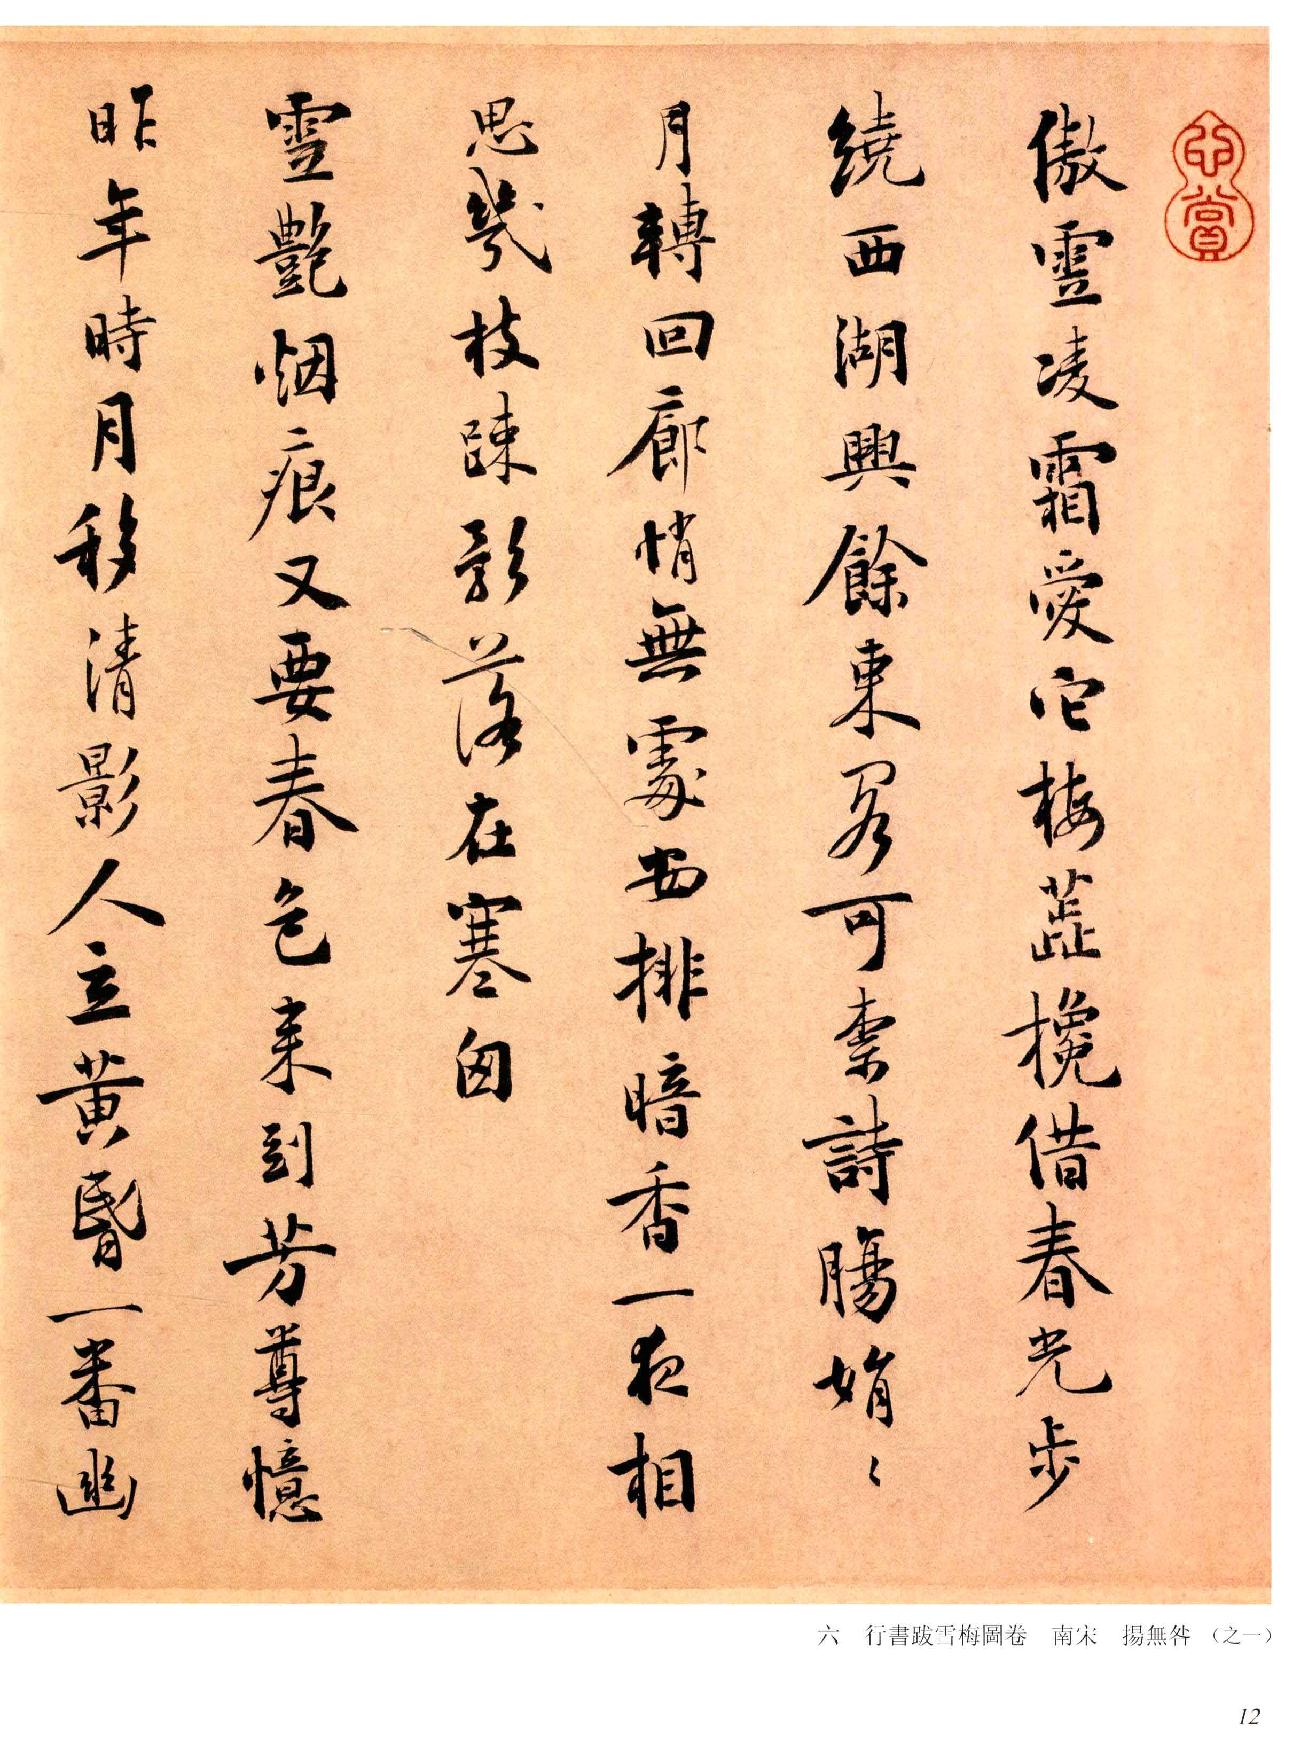 心賞
傲雪凌霜愛它梅蕋攙借春光步
繞西湖興餘東閣可柰詩腸娟〻
月轉回廊悄無處安排暗香一夜相
思幾枝疎影落在寒囱
雪艷烟痕又要春色來到芳尊憶
昨年時月移清影人立黃昬一番幽
六　行書跋雪梅圖卷　南宋　揚無咎　（之一）
12